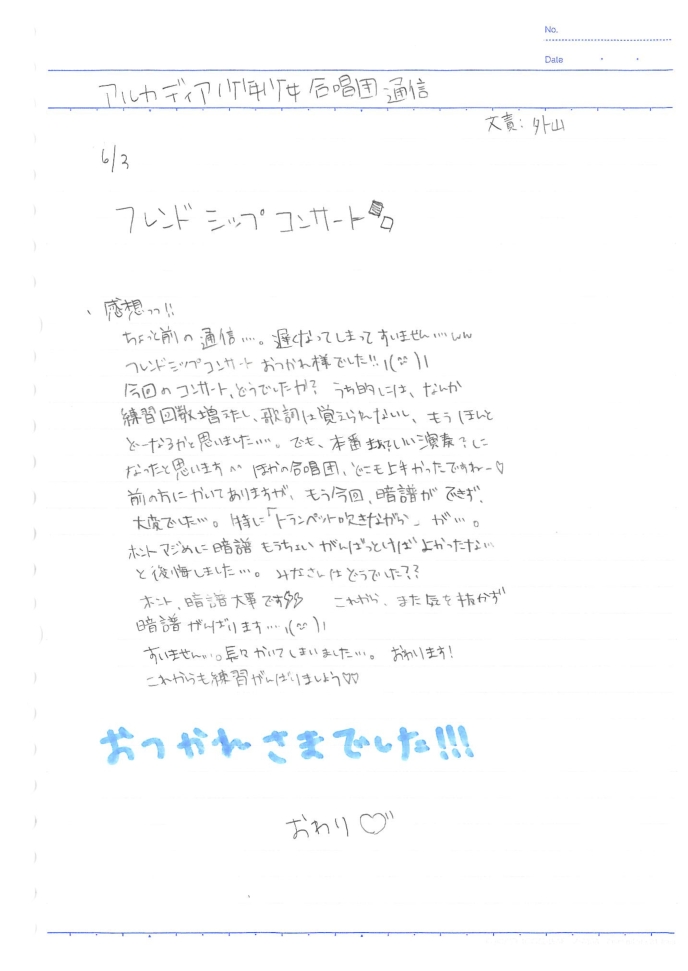 No.
Date
アルカディア少年少女合唱団通信
文責：外山
6/3
フレンドシップコンサート
、感想っっ!!
ちょっと前の通信…。遅くなってしまってすいません…ww
フレンドシップコンサートおつかれ様でした!!
今回のコンサート、どうでしたか？ うち的には、なんか
練習回数増えたし、歌詞は覚えられないし、もうほんと
どーなるかと思いました…。でも、本番はいい演奏？に
なったと思います^^ ほかの合唱団、どこも上手かったですねー♡
前の方にかいてありますが、もう今回、暗譜ができず、
大変でした…。特に「トランペット吹きながら」が…。
ホントマジめに暗譜もうちょいがんばっとけばよかったな…
と後悔しました…。みなさんはどうでした??
ホント、暗譜大事です これから、また気を抜かず
暗譜がんばります…
すいません…。長々かいてしまいました…。おわります！
これからも練習がんばりましょう♡♡
おつかれさまでした!!!
おわり♡